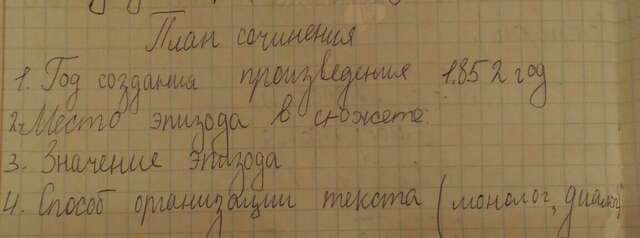 План сочинения
1. Год создания произведения 1852 год
2. Место эпизода в сюжете.
3. Значение эпизода
4. Способ организации текста (монолог, диалог)